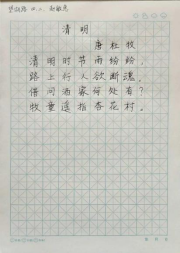 清明
唐杜牧
清明时节雨纷纷，
路上行人欲断魂。
借问酒家何处有？
牧童遥指杏花村。